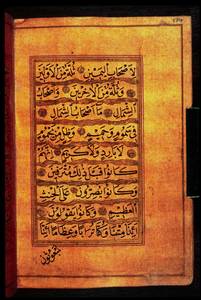 لأصحاب اليمين ثلة من الأولين
وثلة من الآخرين وأصحاب
الشمال ما أصحاب الشمال
في سموم وحميم وظل من يحموم
لا بارد ولا كريم إنهم
كانوا قبل ذلك مترفين
وكانوا يصرون على الحنث
العظيم وكانوا يقولون
أئذا متنا وكنا ترابا وعظاما أئنا